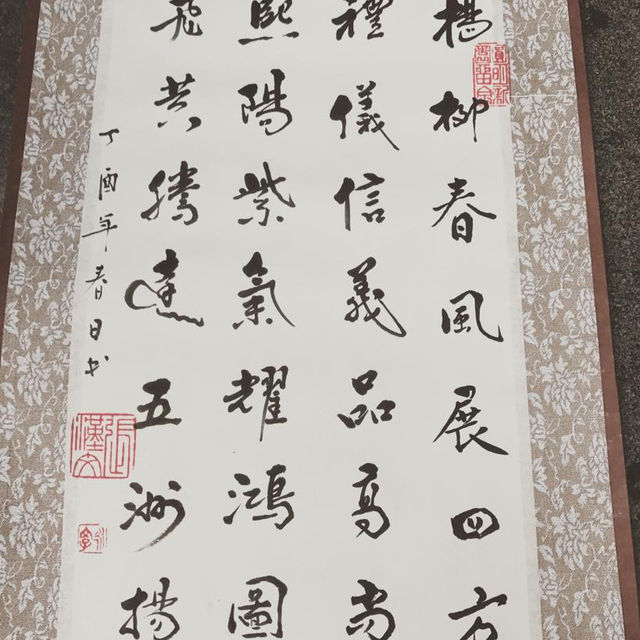 楊柳春風展四方
禮儀信義品高尚
熙陽紫氣耀鴻圖
飛共騰達五洲揚
丁酉年春日书